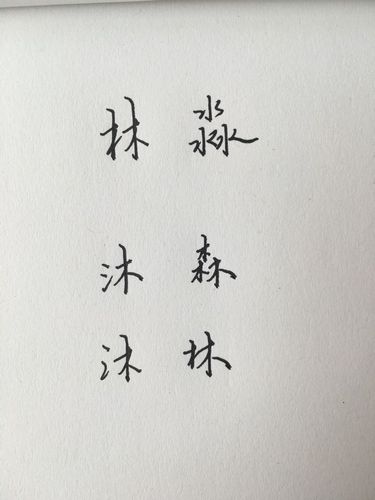 林 淼
沐 森
沐 林